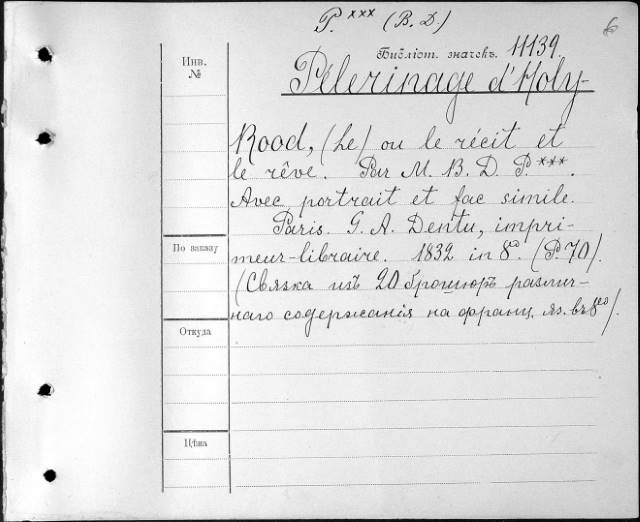 P. *** (B. D.)
6
Библіот. значекъ. 11139.
Инв.
№
Pélerinage d'Holy-
Rood, (Le) ou le récit et
le rêve. Par M. B. D. P. ***.
Avec portrait et fac simile.
Paris. G. A. Dentu, impri-
По заказу
meur-libraire. 1832 in 8°. (P. 70).
(Связка изъ 20 брошюръ различ-
наго содержанія на франц. яз. въ 8eo).
Откуда
Цѣна